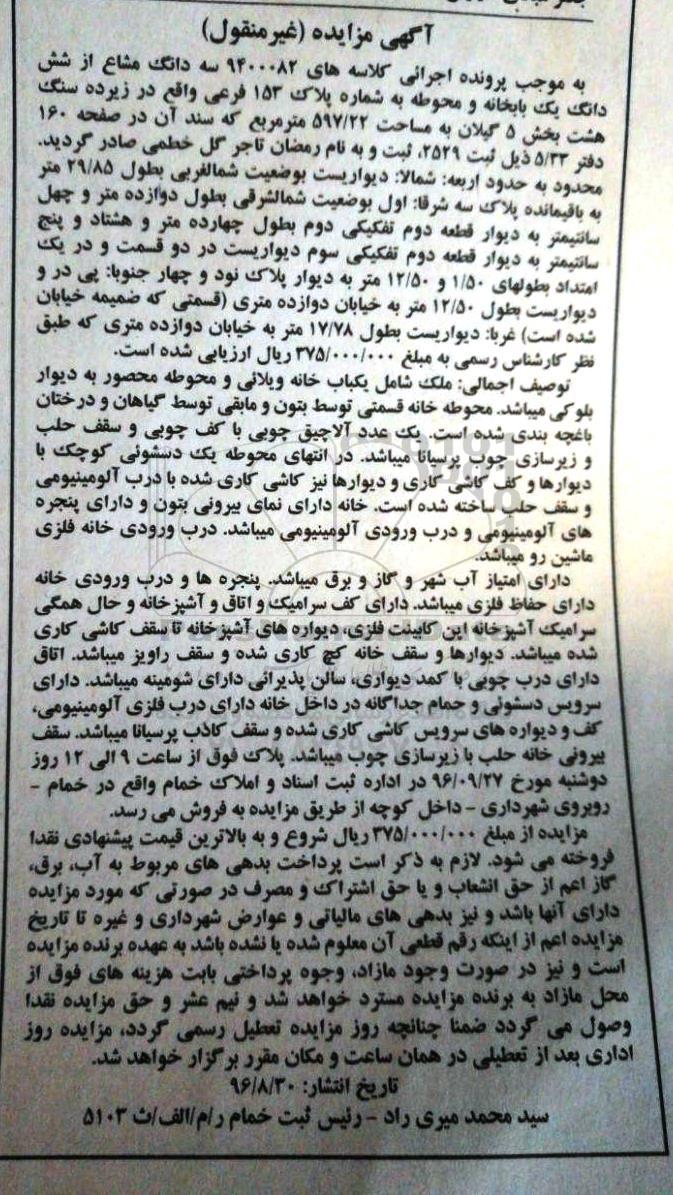 آگهی مزایده (غیرمنقول)
به موجب پرونده اجرائی کلاسه های ۹۴۰۰۰۸۲ سه دانگ مشاع از شش
دانگ یک بابخانه و محوطه به شماره پلاک ۱۵۳ فرعی واقع در زیرده سنگ
هشت بخش ۵ گیلان به مساحت ۵۹۷/۲۲ مترمربع که سند آن در صفحه ۱۶۰
دفتر ۵/۳۳ ذیل ثبت ۲۵۲۹، ثبت و به نام رمضان تاجر گل خطمی صادر گردید.
محدود به حدود اربعه: شمالا: دیواریست بوضعیت شمالغربی بطول ۲۹/۸۵ متر
به باقیمانده پلاک سه شرقا: اول بوضعیت شمالشرقی بطول دوازده متر و چهل
سانتیمتر به دیوار قطعه دوم تفکیکی دوم بطول چهارده متر و هشتاد و پنج
سانتیمتر به دیوار قطعه دوم تفکیکی سوم دیواریست در دو قسمت و در یک
امتداد بطولهای ۱/۵۰ و ۱۲/۵۰ متر به دیوار پلاک نود و چهار جنوبا: پی در و
دیواریست بطول ۱۲/۵۰ متر به خیابان دوازده متری (قسمتی که ضمیمه خیابان
شده است) غربا: دیواریست بطول ۱۷/۷۸ متر به خیابان دوازده متری که طبق
نظر کارشناس رسمی به مبلغ ۳۷۵/۰۰۰/۰۰۰ ریال ارزیابی شده است.
توصیف اجمالی: ملک شامل یکباب خانه ویلائی و محوطه محصور به دیوار
بلوکی میباشد. محوطه خانه قسمتی توسط بتون و مابقی توسط گیاهان و درختان
باغچه بندی شده است. یک عدد آلاچیق چوبی با کف چوبی و سقف حلب
و زیرسازی چوب پرسیانا میباشد. در انتهای محوطه یک دستشوئی کوچک با
دیوارها و کف کاشی کاری و دیوارها نیز کاشی کاری شده با درب آلومینیومی
و سقف حلب ساخته شده است. خانه دارای نمای بیرونی بتون و دارای پنجره
های آلومینیومی و درب ورودی آلومینیومی میباشد. درب ورودی خانه فلزی
ماشین رو میباشد.
دارای امتیاز آب شهر و گاز و برق میباشد. پنجره ها و درب ورودی خانه
دارای حفاظ فلزی میباشد. دارای کف سرامیک و اتاق و آشپزخانه و حال همگی
سرامیک آشپزخانه این کابینت فلزی، دیواره های آشپزخانه تا سقف کاشی کاری
شده میباشد. دیوارها و سقف خانه گچ کاری شده و سقف راویز میباشد. اتاق
دارای درب چوبی با کمد دیواری، سالن پذیرائی دارای شومینه میباشد. دارای
سرویس دستشوئی و حمام جداگانه در داخل خانه دارای درب فلزی آلومینیومی،
کف و دیواره های سرویس کاشی کاری شده و سقف کاذب پرسیانا میباشد. سقف
بیرونی خانه حلب با زیرسازی چوب میباشد. پلاک فوق از ساعت ۹ الی ۱۲ روز
دوشنبه مورخ ۹۶/۰۹/۲۷ در اداره ثبت اسناد و املاک خمام واقع در خمام -
روبروی شهرداری - داخل کوچه از طریق مزایده به فروش می رسد.
مزایده از مبلغ ۳۷۵/۰۰۰/۰۰۰ ریال شروع و به بالاترین قیمت پیشنهادی نقدا
فروخته می شود. لازم به ذکر است پرداخت بدهی های مربوط به آب، برق،
گاز اعم از حق انشعاب و یا حق اشتراک و مصرف در صورتی که مورد مزایده
دارای آنها باشد و نیز بدهی های مالیاتی و عوارض شهرداری و غیره تا تاریخ
مزایده اعم از اینکه رقم قطعی آن معلوم شده یا نشده باشد به عهده برنده مزایده
است و نیز در صورت وجود مازاد، وجوه پرداختی بابت هزینه های فوق از
محل مازاد به برنده مزایده مسترد خواهد شد و نیم عشر و حق مزایده نقدا
وصول می گردد ضمنا چنانچه روز مزایده تعطیل رسمی گردد، مزایده روز
اداری بعد از تعطیلی در همان ساعت و مکان مقرر برگزار خواهد شد.
تاریخ انتشار: ۹۶/۸/۳۰
سید محمد میری راد - رئیس ثبت خمام ر/م/الف/ث ۵۱۰۳